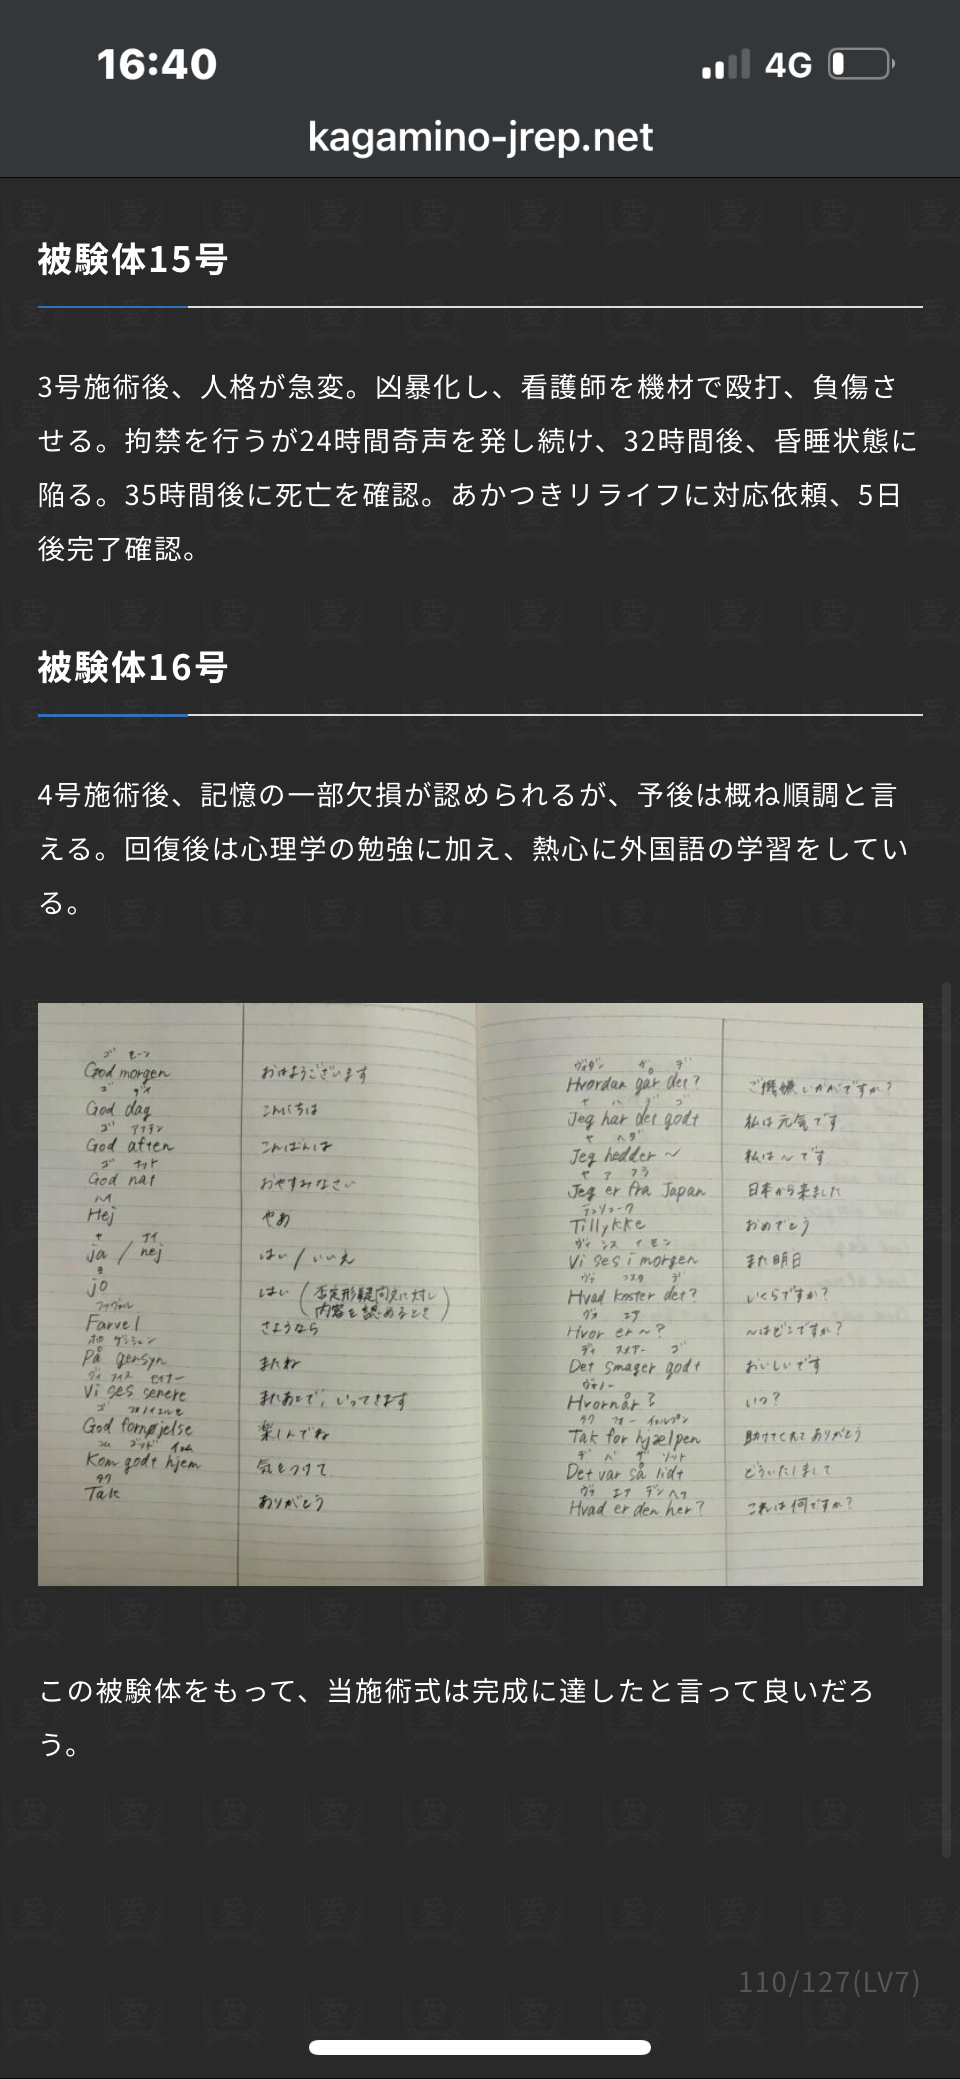 16:40
4G
kagamino-jrep.net
被験体15号
3号施術後、人格が急変。凶暴化し、看護師を機材で殴打、負傷さ
せる。拘禁を行うが24時間奇声を発し続け、32時間後、昏睡状態に
陥る。35時間後に死亡を確認。あかつきリライフに対応依頼、5日
後完了確認。
被験体16号
4号施術後、記憶の一部欠損が認められるが、予後は概ね順調と言
える。回復後は心理学の勉強に加え、熱心に外国語の学習をしてい
る。
ゴ モーン
God morgen おはようございます
ゴ デイ
God dag こんにちは
ゴ アフテン
God aften こんばんは
ゴ ナット
God nat おやすみなさい
Hej やあ
ヤ ナイ
ja / nej はい / いいえ
ヨ
jo はい (否定形疑問文に対し
内容を認めるとき)
ファヴェル
Farvel さようなら
ポ ゲンシュン
På gensyn またね
Vi ses senere またあとで, いってきます
God fornøjelse 楽しんでね
Kom godt hjem 気をつけて
タク
Tak ありがとう
ヴォダン ゴ デ
Hvordan går det? ご機嫌いかがですか?
ヤ ハ デ ゴ
Jeg har det godt 私は元気です
ヤ ヘダ
Jeg hedder ~ 私は~です
ヤ ア フラ
Jeg er fra Japan 日本から来ました
Tillykke おめでとう
ヴィ シス イ モン
Vi ses i morgen また明日
ヴァ コスタ デ
Hvad koster det? いくらですか?
ヴォ エア
Hvor er ~? ~はどこですか?
ディ スメアー ゴ
Det smager godt おいしいです
ヴォノー
Hvornår? いつ?
タク フォー イェルプン
Tak for hjælpen 助けてくれてありがとう
デ バ ザ リット
Det var så lidt どういたしまして
ヴァ エア デン ヘア
Hvad er den her? これは何ですか?
この被験体をもって、当施術式は完成に達したと言って良いだろ
う。
110/127(LV7)